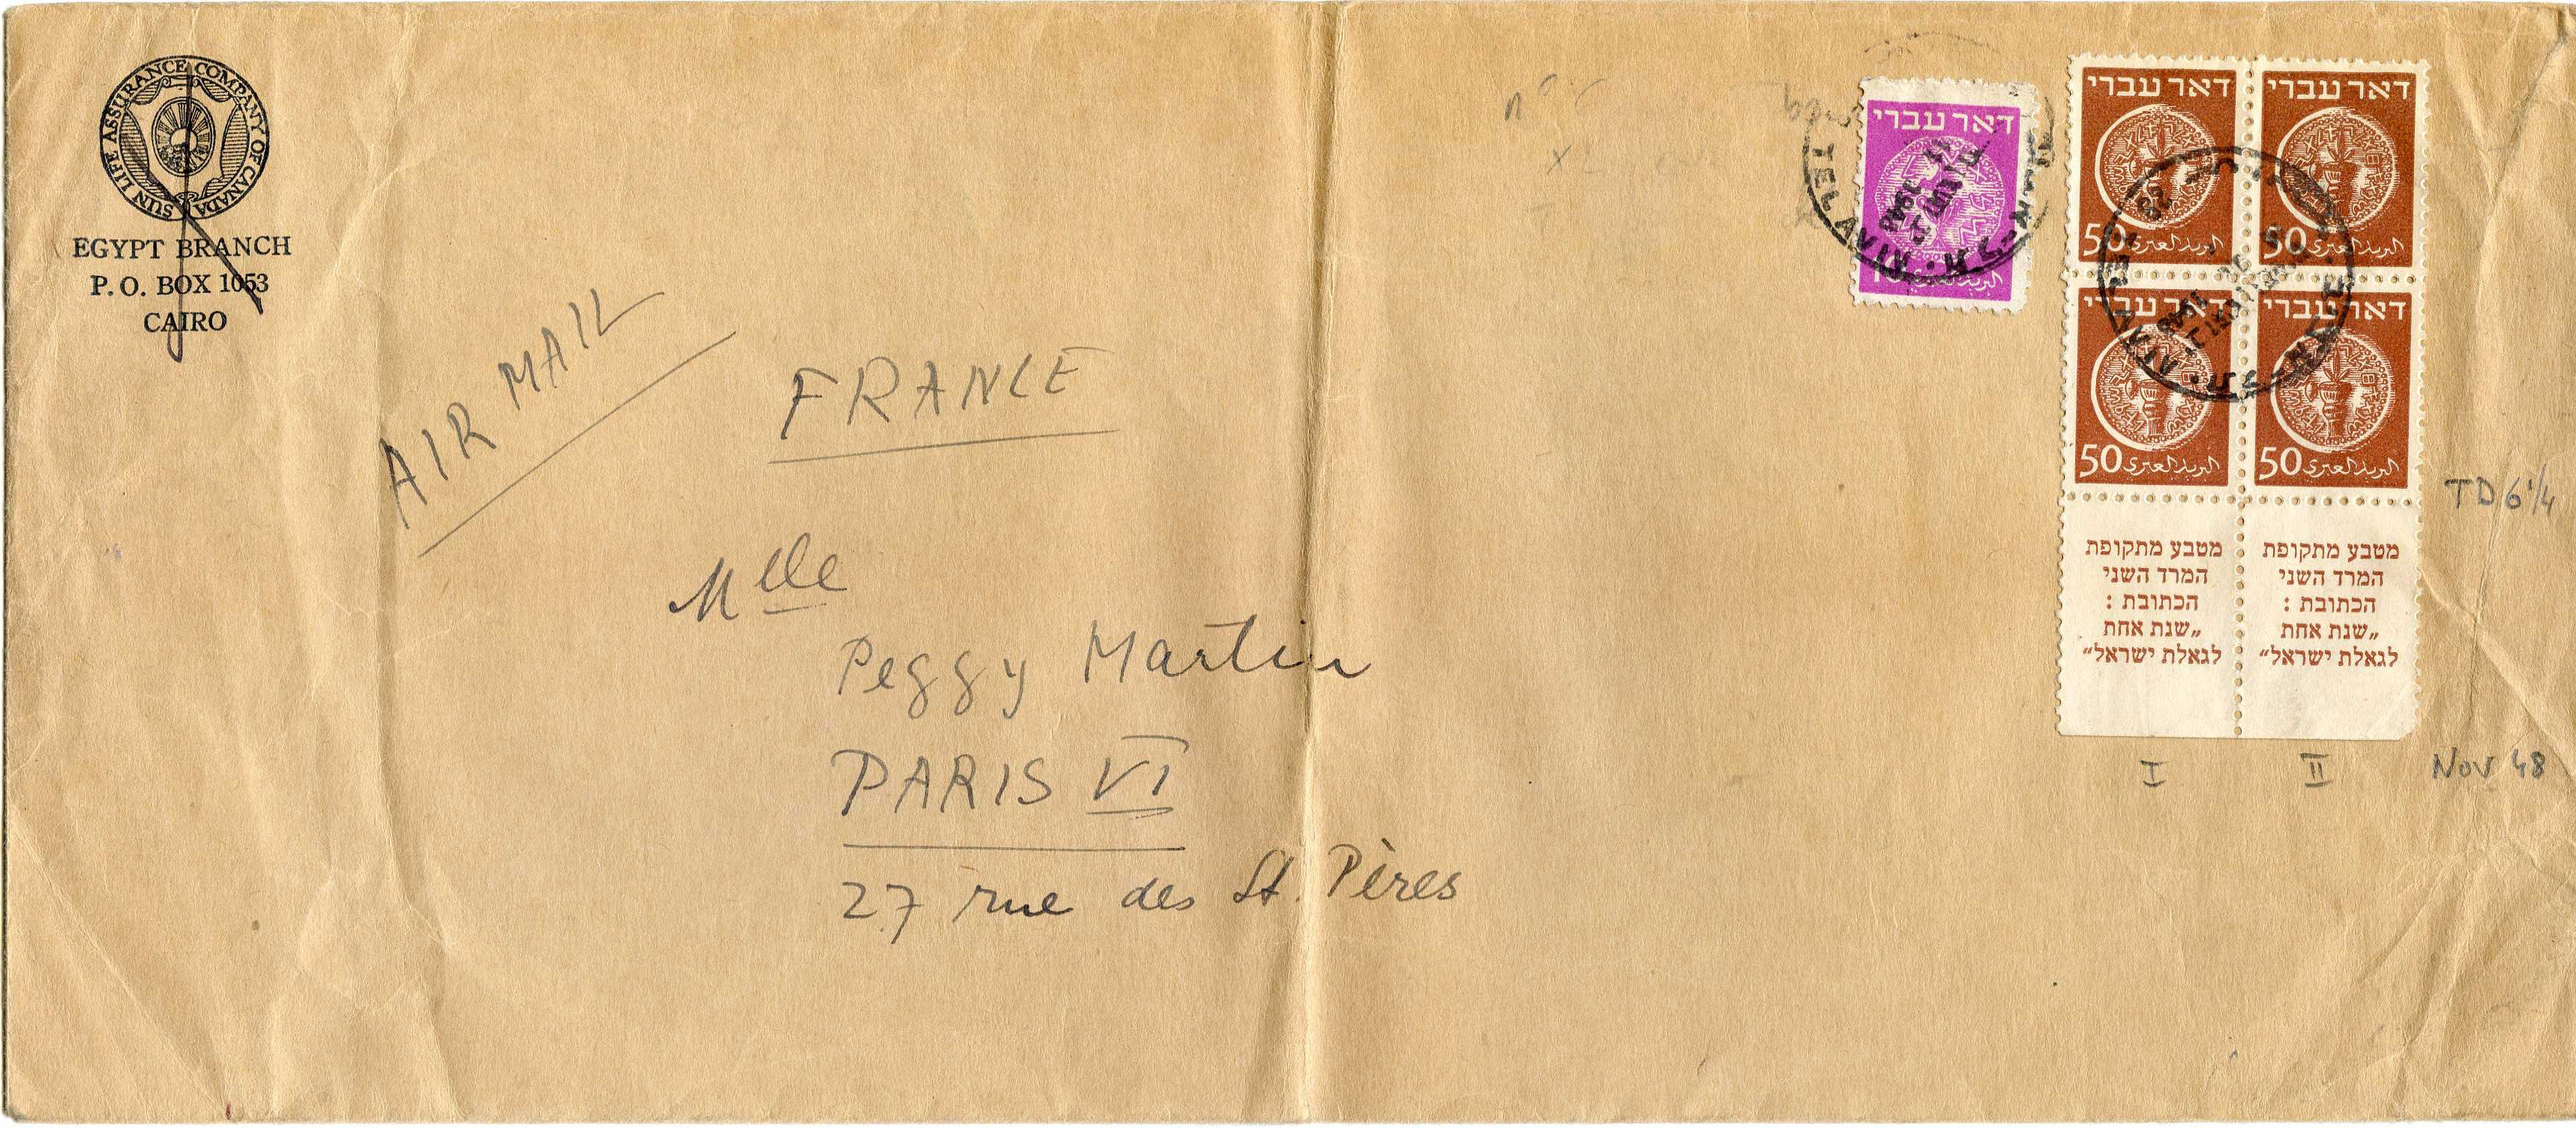 SUN LIFE ASSURANCE COMPANY OF CANADA
EGYPT BRANCH
P. O. BOX 1053
CAIRO
AIR MAIL
FRANCE
Mlle
Peggy Martin
PARIS VI
27 rue des St. Pères
דאר עברי
TEL AVIV
1948
10
דאר עברי
50 البريد العبري
דאר עברי
50 البريد العبري
דאר עברי
50 البريد العبري
דאר עברי
50 البريد العبري
TEL AVIV
מטבע מתקופת
המרד השני
הכתובת :
„שנת אחת
לגאלת ישראל“
מטבע מתקופת
המרד השני
הכתובת :
„שנת אחת
לגאלת ישראל“
TD 6 1/4
I II
Nov 48